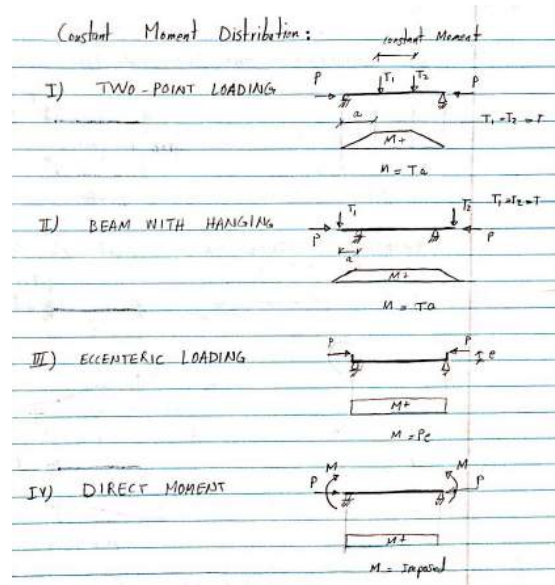 Constant Moment Distribution:
constant Moment
I) TWO-POINT LOADING
P T1 T2 P
a
T1=T2=T
M+
M = Ta
II) BEAM WITH HANGING
T1 T2 T1=T2=T
P P
a
M+
M = Ta
III) ECCENTERIC LOADING
P P
e
M+
M = Pe
IV) DIRECT MOMENT
P M M P
M+
M = Imposed